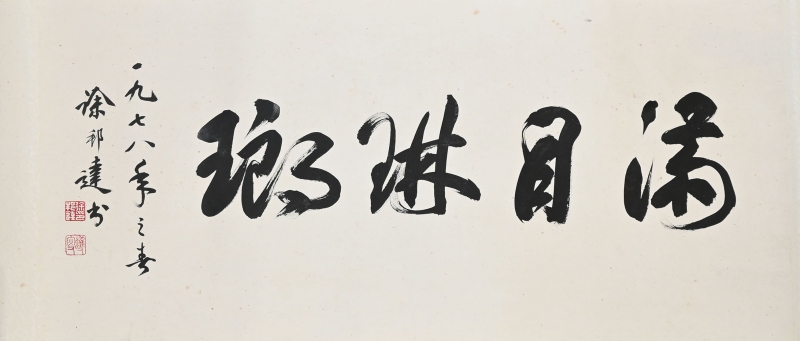 满目琳琅
一九七八年之春
徐邦達书